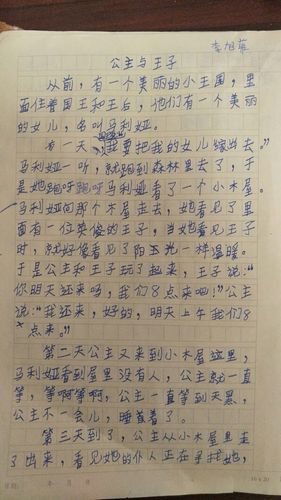 李旭菲
公主与王子
从前，有一个美丽的小王国，里
面住着国王和王后，他们有一个美丽
的女儿，名叫马利娅。
有一天，我要把我的女儿嫁出去。”
马利娅一听，就跑到森林里去了，于
是她跑呀跑呀马利娅看了一个小木屋。
马利娅向那个木屋走去，她看见了里
面有一位英俊的王子，当她看见王子
时，就好像看见了阳光一样温暖。
于是公主和王子玩了起来，王子说：“
你明天还来吗，我们8点来吧！”公主
说：“我还来，好的，明天上午我们8
点来。”
第二天公主又来到小木屋这里，
马利娅看到屋里没有人，公主就一直
等，等啊等啊，公主一直等到天黑，
公主不一会儿，睡着着了。
第三天到了，公主从小木屋里走
了出来，看见她的仆人正在寻找她，
年 月 日